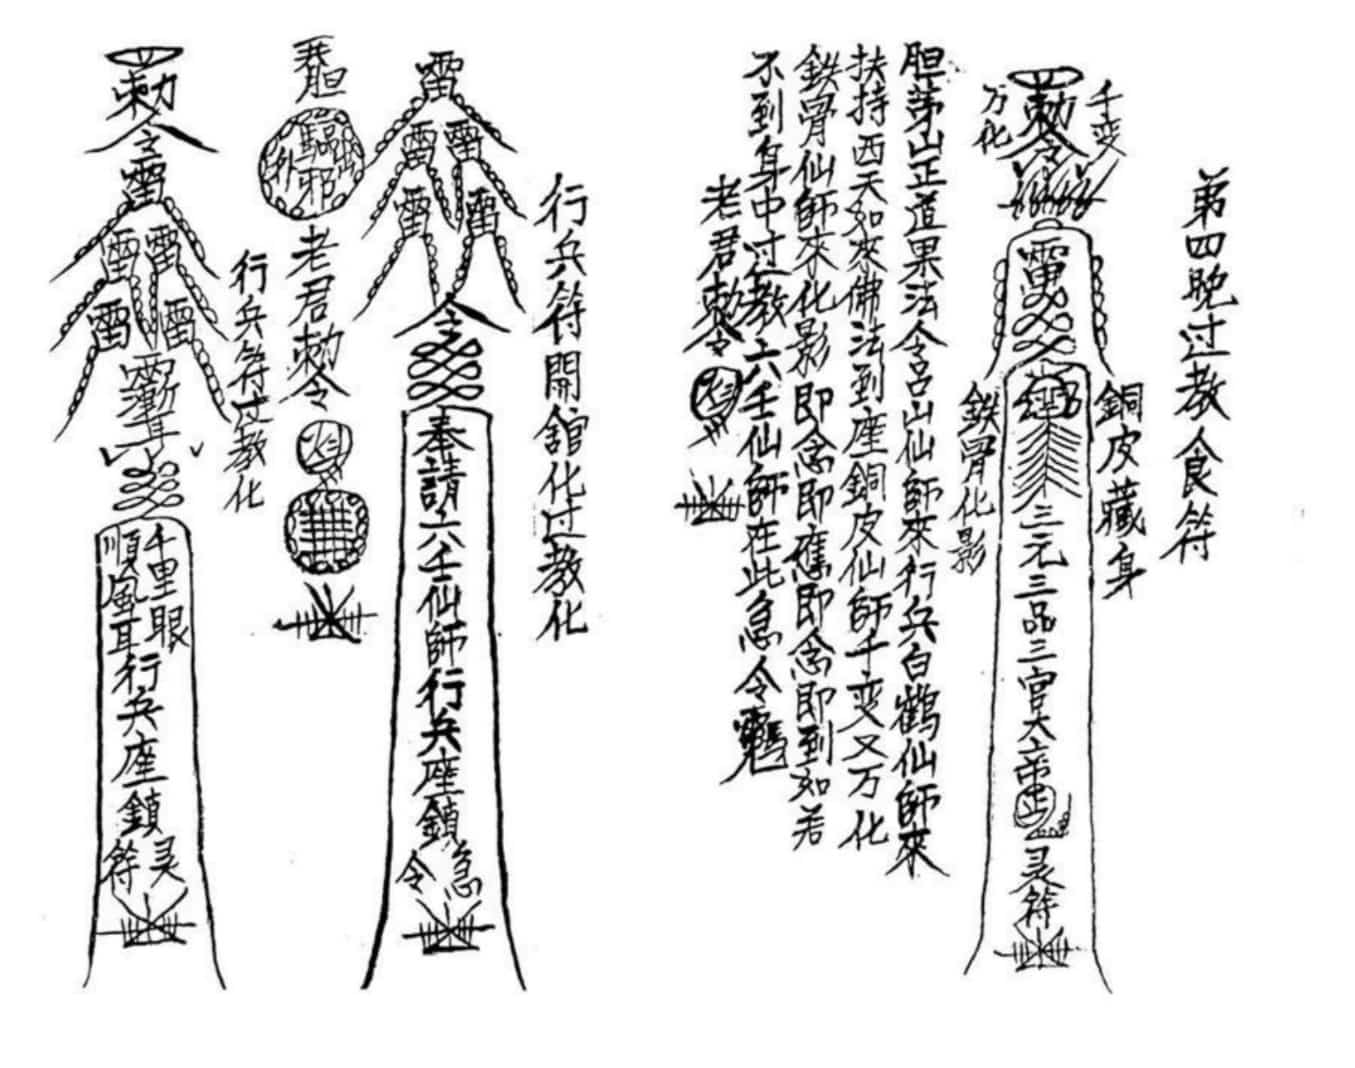 第四晚过教食符
千变
万化
勅令
雷
銅皮藏身
鉄骨化影
三元三品三官大帝
灵符
胆茅山正道果法令呂山仙師來行兵白鶴仙師來
扶持西天如來佛法到座銅皮仙師千变又万化
鉄骨仙師來化影即念即應即念即到如若
不到身中过教六壬仙師在此急令
老君勅令
行兵符開舘化过教化
雷
雷雷
雷雷
令
奉請六壬仙師行兵座鎮
急令
胆
驅邪
老君勅令
行兵符过教化
勅令
雷
雷雷
雷雷
千里眼
順風耳
行兵座鎮
灵符